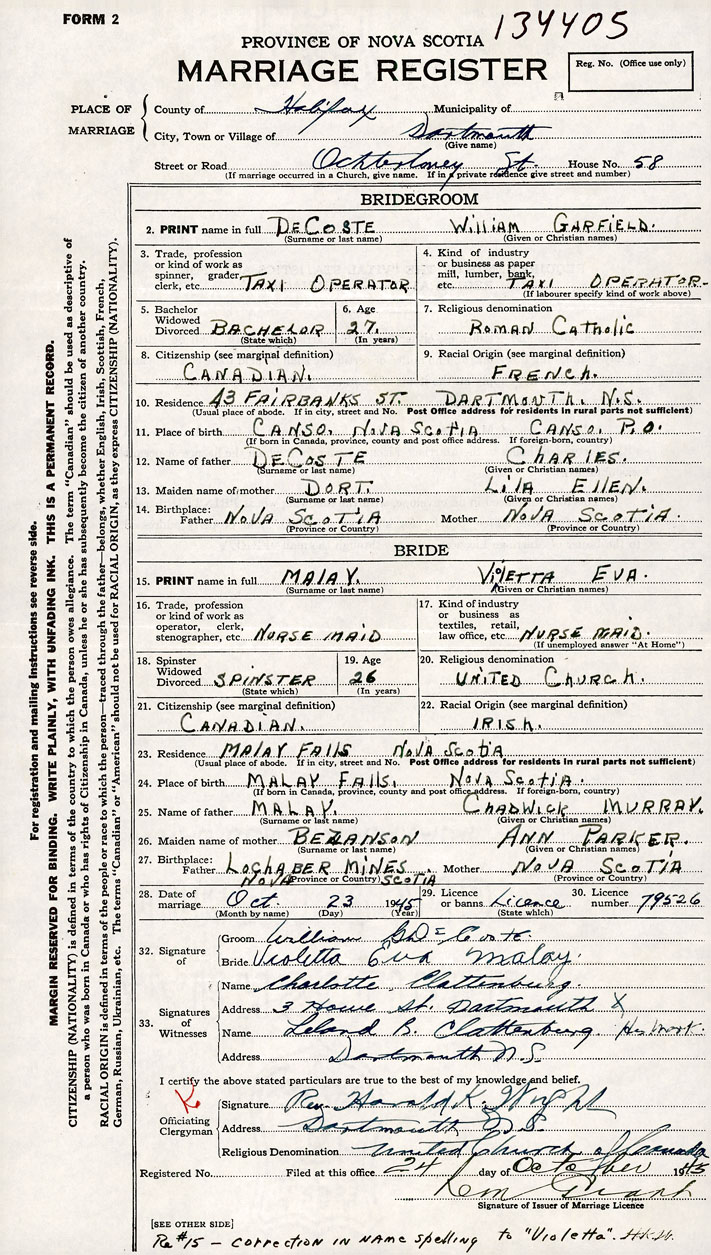 FORM 2
134405
PROVINCE OF NOVA SCOTIA
MARRIAGE REGISTER
Reg. No. (Office use only)
PLACE OF MARRIAGE
County of Halifax Municipality of
City, Town or Village of Dartmouth
(Give name)
Street or Road Ochterloney St. House No. 58
(If marriage occurred in a Church, give name. If in a private residence give street and number)
BRIDEGROOM
2. PRINT name in full DECOSTE WILLIAM GARFIELD.
(Surname or last name) (Given or Christian names)
3. Trade, profession or kind of work as spinner, grader, clerk, etc. TAXI OPERATOR
4. Kind of industry or business as paper mill, lumber, bank, etc. TAXI OPERATOR-
(If labourer specify kind of work above)
5. Bachelor Widowed Divorced BACHELOR
(State which)
6. Age 27.
(In years)
7. Religious denomination ROMAN CATHOLIC
8. Citizenship (see marginal definition) CANADIAN.
9. Racial Origin (see marginal definition) FRENCH.
10. Residence 43 FAIRBANKS ST. DARTMOUTH. N.S.
(Usual place of abode. If in city, street and No. Post Office address for residents in rural parts not sufficient)
11. Place of birth CANSO, NOVA SCOTIA CANSO. P.O.
(If born in Canada, province, county and post office address. If foreign-born, country)
12. Name of father DECOSTE CHARLES.
(Surname or last name) (Given or Christian names)
13. Maiden name of mother DORT. LILA ELLEN.
(Surname or last name) (Given or Christian names)
14. Birthplace: Father NOVA SCOTIA Mother NOVA SCOTIA.
(Province or Country) (Province or Country)
BRIDE
15. PRINT name in full MALAY. VIOLETTA EVA.
(Surname or last name) (Given or Christian names)
16. Trade, profession or kind of work as operator, clerk, stenographer, etc. NURSE MAID
17. Kind of industry or business as textiles, retail, law office, etc. NURSE MAID.
(If unemployed answer "At Home")
18. Spinster Widowed Divorced SPINSTER
(State which)
19. Age 26
(In years)
20. Religious denomination UNITED CHURCH.
21. Citizenship (see marginal definition) CANADIAN.
22. Racial Origin (see marginal definition) IRISH.
23. Residence MALAY FALLS NOVA SCOTIA
(Usual place of abode. If in city, street and No. Post Office address for residents in rural parts not sufficient)
24. Place of birth MALAY FALLS, NOVA SCOTIA.
(If born in Canada, province, county and post office address. If foreign-born, country)
25. Name of father MALAY. CHADWICK MURRAY.
(Surname or last name) (Given or Christian names)
26. Maiden name of mother BEZANSON ANN PARKER.
(Surname or last name) (Given or Christian names)
27. Birthplace: Father LOCHABER MINES NOVA SCOTIA Mother NOVA SCOTIA
(Province or Country) (Province or Country)
28. Date of marriage Oct. 23 1945
(Month by name) (Day) (Year)
29. Licence or banns Licence
(State which)
30. Licence number 79526
32. Signature of
Groom William
Bride Violetta Eva Malay.
33. Signatures of Witnesses
Name Charlotte Clattenburg.
Address 3 Howe St. Dartmouth X
Name Leland B. Clattenburg.
Address Dartmouth N.S.
I certify the above stated particulars are true to the best of my knowledge and belief.
Officiating Clergyman
Signature Rev. Harold K. Wright
Address Dartmouth N.S.
Religious Denomination United Church of Canada
Registered No. Filed at this office 24 day of October 1945
Signature of Issuer of Marriage Licence
[SEE OTHER SIDE]
Re #15 - CORRECTION IN NAME SPELLING to "Violetta". H.K.W.
For registration and mailing instructions see reverse side.
MARGIN RESERVED FOR BINDING. WRITE PLAINLY, WITH UNFADING INK. THIS IS A PERMANENT RECORD.
CITIZENSHIP (NATIONALITY) is defined in terms of the country to which the person owes allegiance. The term "Canadian" should be used as descriptive of
a person who was born in Canada or who has rights of Citizenship in Canada, unless he or she has subsequently become the citizen of another country.
RACIAL ORIGIN is defined in terms of the people or race to which the person—traced through the father—belongs, whether English, Irish, Scottish, French,
German, Russian, Ukrainian, etc. The terms "Canadian" or "American" should not be used for RACIAL ORIGIN, as they express CITIZENSHIP (NATIONALITY).